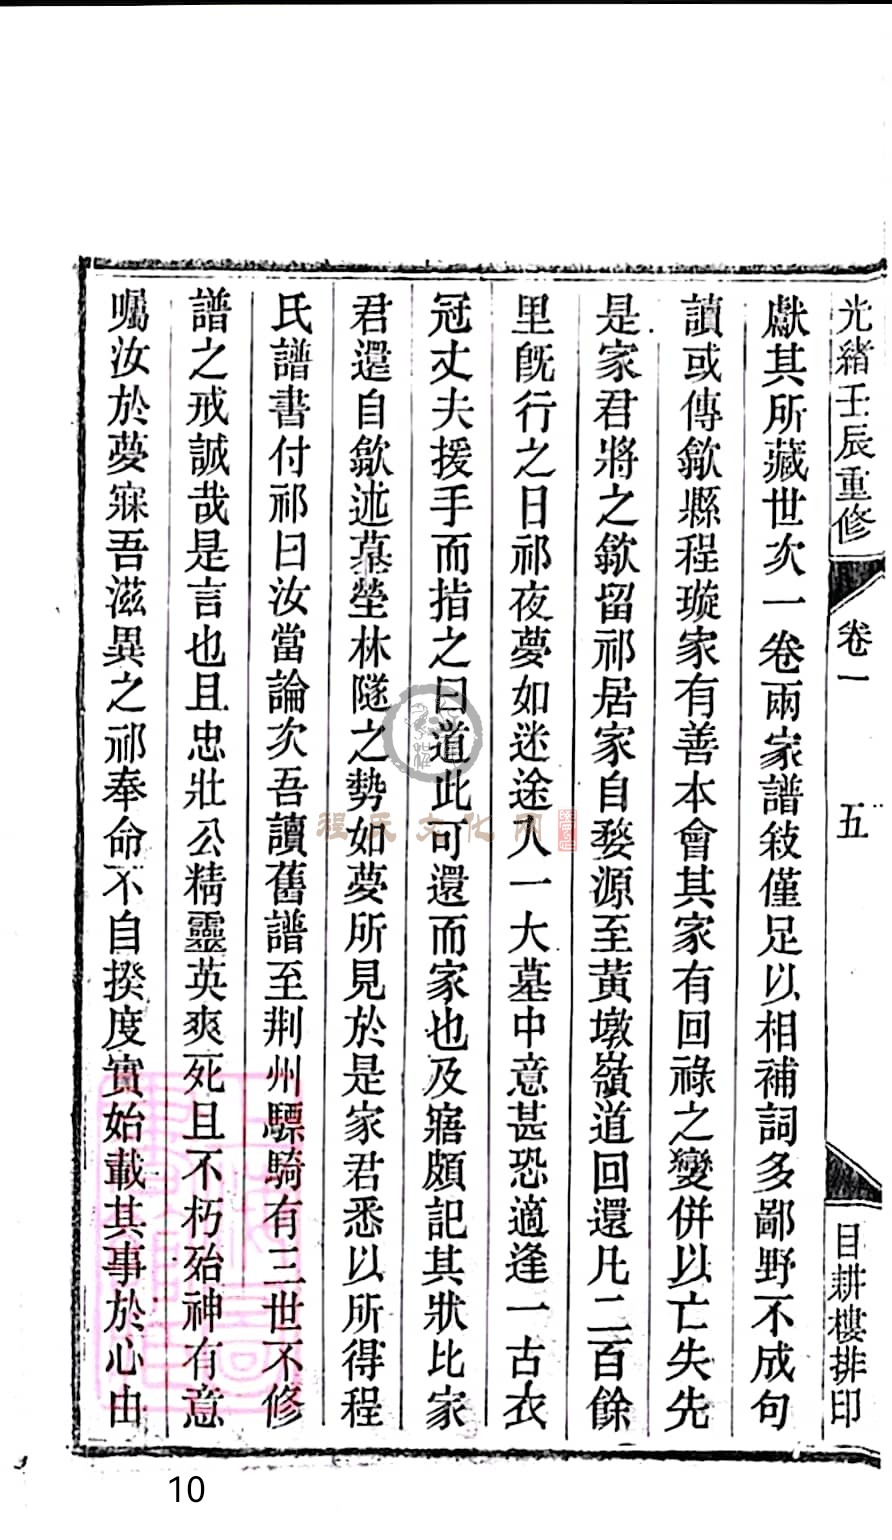 光緒壬辰重修 卷一 五 目耕樓排印
獻其所藏世次一卷兩家譜敍僅足以相補詞多鄙野不成句
讀或傳歙縣程璇家有善本會其家有回祿之變併以亡失先
是家君將之歙留祁居家自婺源至黃墩嶺道回還凡二百餘
里旣行之日祁夜夢如迷途人一大墓中意甚恐適逢一古衣
冠丈夫援手而指之曰道此可還而家也及寤頗記其狀比家
君還自歙述墓塋林隧之勢如夢所見於是家君悉以所得程
氏譜書付祁曰汝當論次吾讀舊譜至荆州驃騎有三世不修
譜之戒誠哉是言也且忠壯公精靈英爽死且不朽殆神有意
囑汝於夢寐吾滋異之祁奉命不自揆度實始載其事於心由
程氏文化网
10